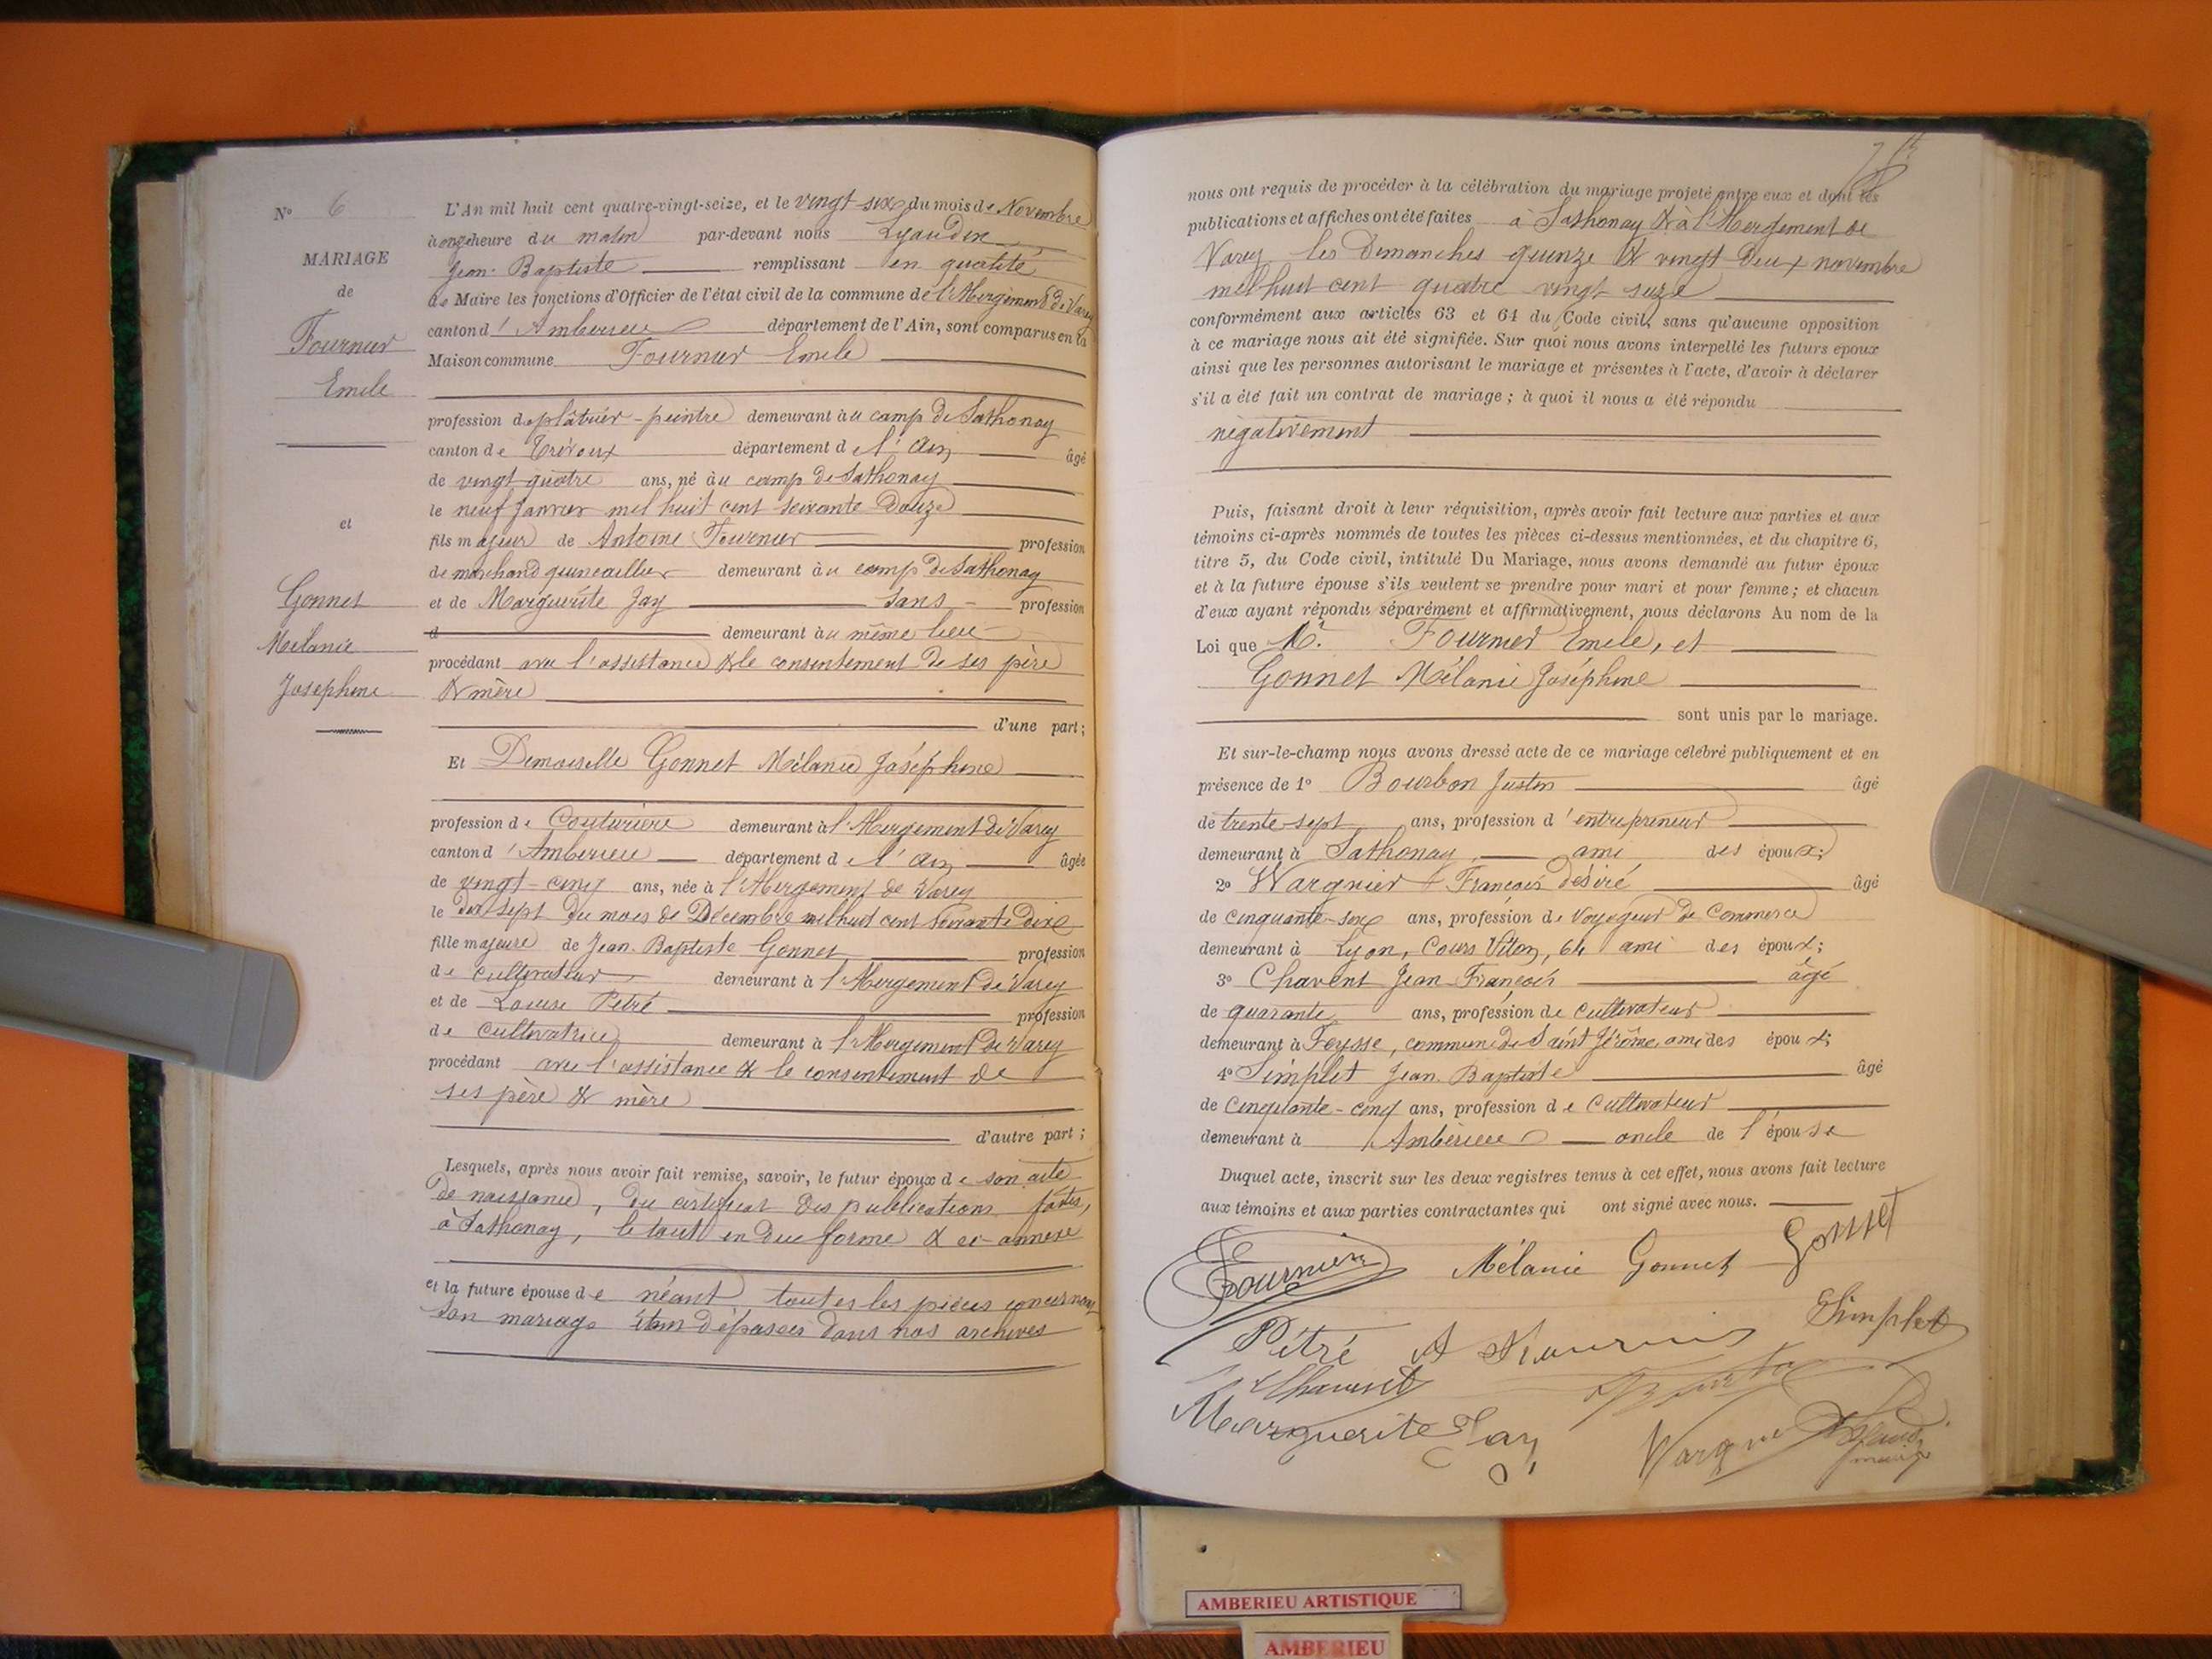 N° 6
MARIAGE
de
Fournier
Emile
et
Gonnet
Mélanie
Joséphine
L'An mil huit cent quatre-vingt-seize, et le vingt-six du mois de Novembre
à onze heure du matin par-devant nous Lyaudin
Jean-Baptiste remplissant en qualité
de Maire les fonctions d'Officier de l'état civil de la commune de l'Abergement de Varey
canton d'Ambérieu département de l'Ain, sont comparus en la
Maison commune Fournier Emile
profession de plâtrier-peintre demeurant au camp de Sathonay
canton de Trévoux département de l'Ain âgé
de vingt quatre ans, né au camp de Sathonay
le neuf Janvier mil huit cent soixante-douze
fils majeur de Antoine Fournier profession
de marchand quincaillier demeurant au camp de Sathonay
et de Marguerite Jay sans profession
d demeurant au même lieu
procédant avec l'assistance & le consentement de ses père
& mère
d'une part;
Et Demoiselle Gonnet Mélanie Joséphine
profession de Couturière demeurant à l'Abergement de Varey
canton d'Ambérieu département de l'Ain âgée
de vingt-cinq ans, née à l'Abergement de Varey
le dix sept du mois de Décembre mil huit cent soixante dix
fille majeure de Jean-Baptiste Gonnet profession
de cultivateur demeurant à l'Abergement de Varey
et de Louise Pétré profession
de cultivatrice demeurant à l'Abergement de Varey
procédant avec l'assistance & le consentement de
ses père & mère
d'autre part;
Lesquels, après nous avoir fait remise, savoir, le futur époux de son acte
de naissance, du certificat des publications faites,
à Sathonay, le tout en due forme & ci-annexé
et la future épouse de néant toutes les pièces concernant
son mariage étant déposées dans nos archives
nous ont requis de procéder à la célébration du mariage projeté entre eux et dont les
publications et affiches ont été faites à Sathonay & à l'Abergement de
Varey les Dimanches quinze & vingt deux novembre
mil huit cent quatre vingt seize
conformément aux articles 63 et 64 du Code civil, sans qu'aucune opposition
à ce mariage nous ait été signifiée. Sur quoi nous avons interpellé les futurs époux
ainsi que les personnes autorisant le mariage et présentes à l'acte, d'avoir à déclarer
s'il a été fait un contrat de mariage; à quoi il nous a été répondu
négativement
Puis, faisant droit à leur réquisition, après avoir fait lecture aux parties et aux
témoins ci-après nommés de toutes les pièces ci-dessus mentionnées, et du chapitre 6,
titre 5, du Code civil, intitulé Du Mariage, nous avons demandé au futur époux
et à la future épouse s'ils veulent se prendre pour mari et pour femme; et chacun
d'eux ayant répondu séparément et affirmativement, nous déclarons Au nom de la
Loi que M. Fournier Emile, et
Gonnet Mélanie Joséphine
sont unis par le mariage.
Et sur-le-champ nous avons dressé acte de ce mariage célébré publiquement et en
présence de 1° Bourbon Justin âgé
de trente-sept ans, profession d'entrepreneur
demeurant à Sathonay, ami des époux;
2° Wargnier François Désiré âgé
de cinquante-six ans, profession de Voyageur de Commerce
demeurant à Lyon, Cours Vitton, 64 ami des époux;
3° Chavent Jean-François âgé
de quarante ans, profession de Cultivateur
demeurant à Feysse, commune de Saint Jérôme, ami des époux;
4° Simplet Jean-Baptiste âgé
de cinquante-cinq ans, profession de Cultivateur
demeurant à Ambérieu oncle de l'épouse
Duquel acte, inscrit sur les deux registres tenus à cet effet, nous avons fait lecture
aux témoins et aux parties contractantes qui ont signé avec nous.
Fournier Mélanie Gonnet Gonnet
Simplet
Pétré
Chavent
Marguerite Jay
AMBERIEU ARTISTIQUE
AMBERIEU